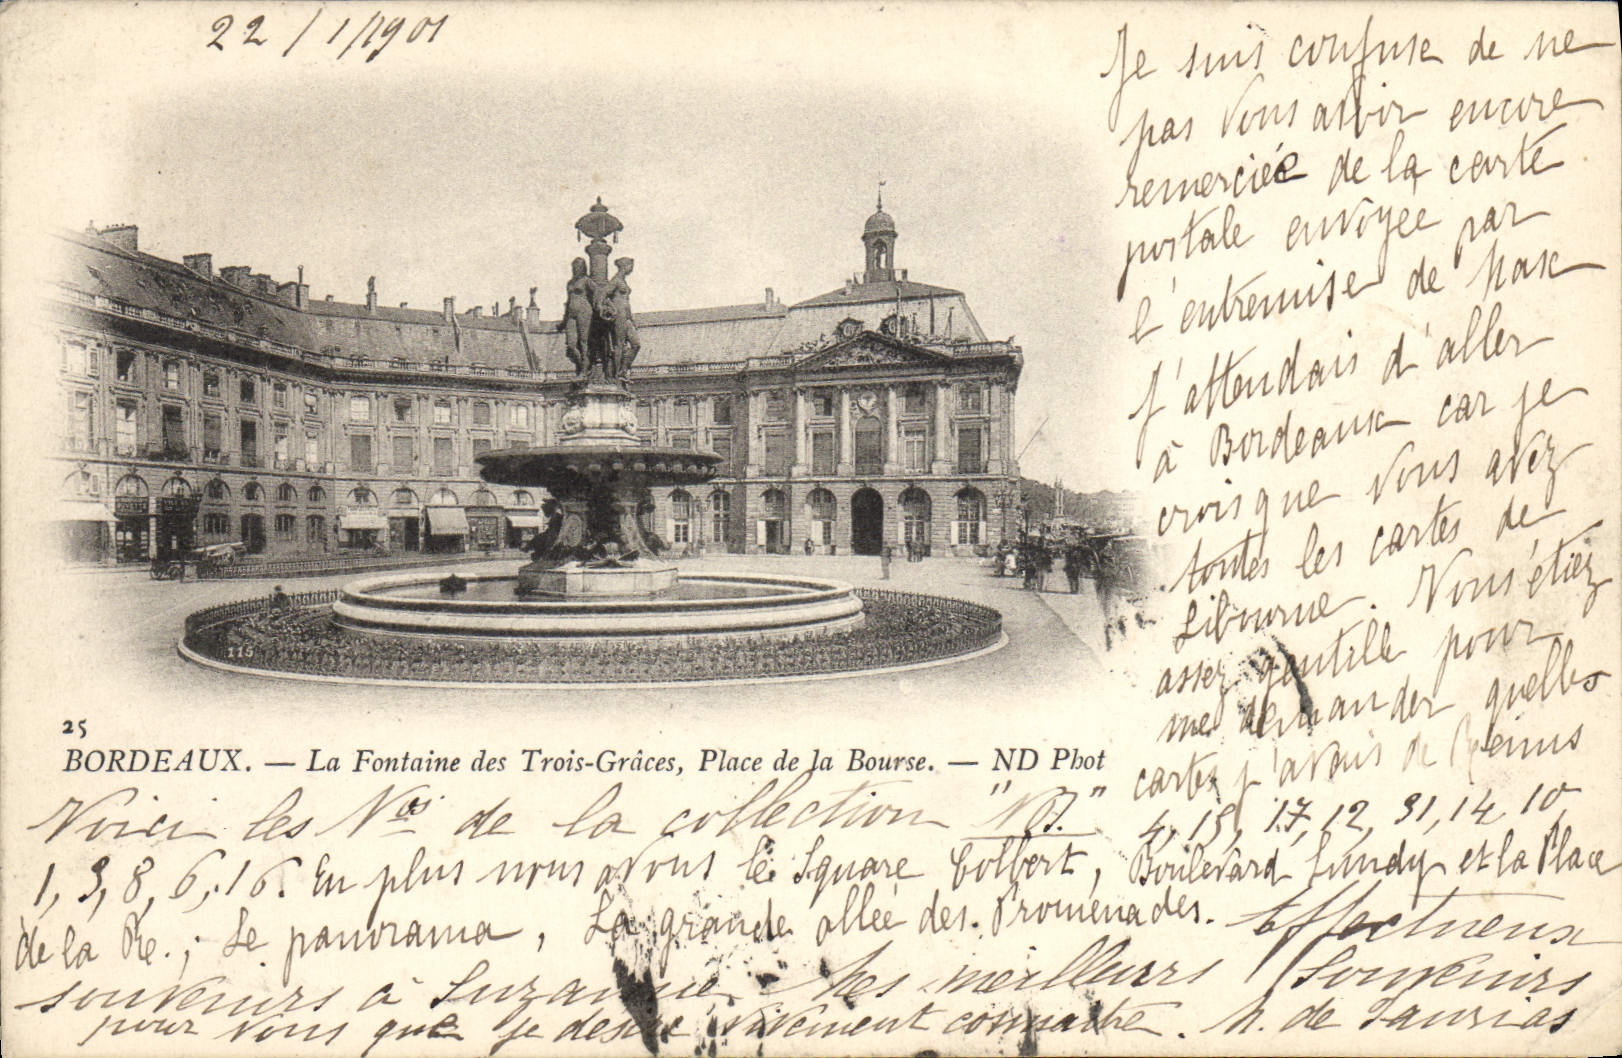 22/1/1901
Je suis confuse de ne
pas vous avoir encore
remerciée de la carte
postale envoyée par
l'entremise de Max
J'attendais d'aller
à Bordeaux car je
crois que vous avez
toutes les cartes de
Libourne. Vous étiez
assez gentille pour
me demander quelles
cartes j'avais de Reims
115
25
BORDEAUX. — La Fontaine des Trois-Grâces, Place de la Bourse. — ND Phot
Voici les Nos de la collection "ND." 4, 15, 17, 12, 31, 14, 10,
1, 3, 8, 6, 16. En plus nous avons le Square Colbert, Boulevard Lundy et la Place
de la Re.; Le panorama, La grande allée des Promenades. Affectueux
souvenirs à Suzanne. Mes meilleurs souvenirs
pour vous que je desire vivement connaître. de